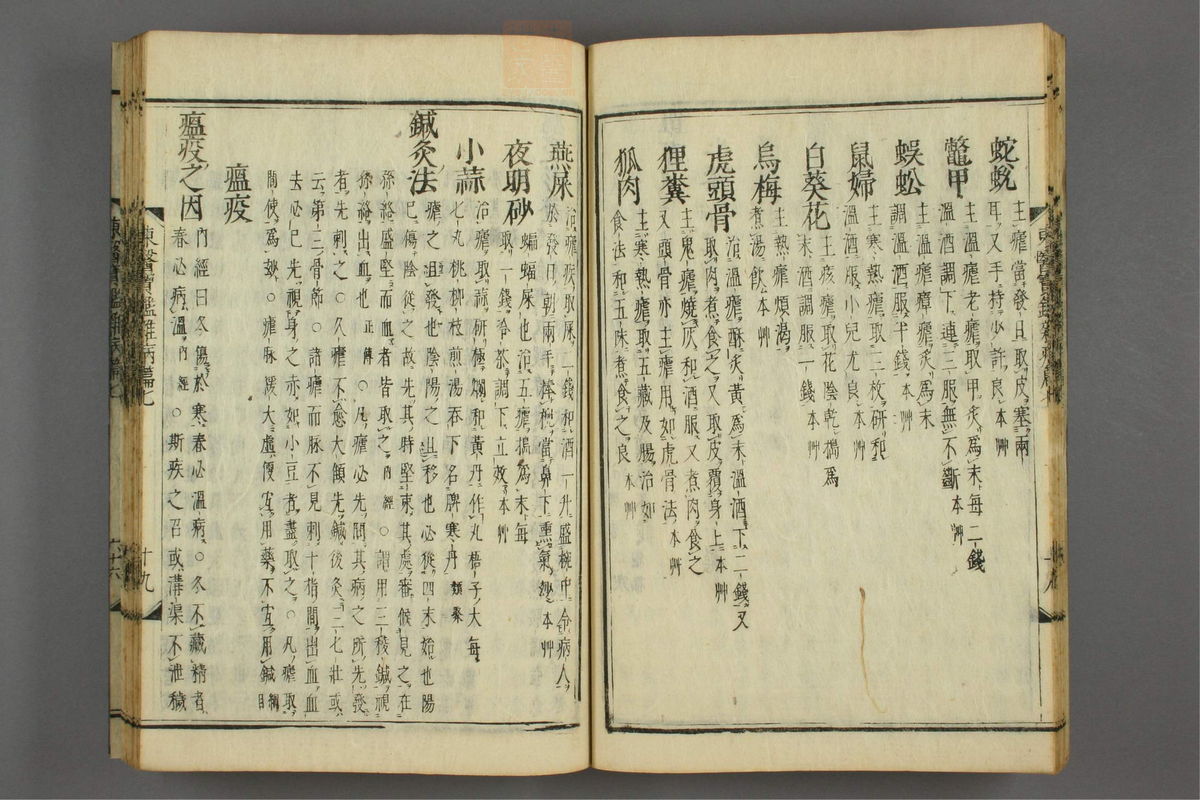 蛇蛻 主瘧當發日取皮塞兩
耳又手持少許良 本艸
鼈甲 主溫瘧老瘧取甲炙爲末每二錢
溫酒調下連三服無不斷 本艸
蜈蚣 主溫瘧瘴瘧炙爲末
調溫酒服半錢 本艸
鼠婦 主寒熱瘧取二枚研和
溫酒服小兒尤良 本艸
白葵花 主痎瘧取花陰乾搗爲
末酒調服一錢 本艸
烏梅 主熱瘧煩渴
煮湯飮 本艸
虎頭骨 治溫瘧酥炙黃爲末溫酒下二錢又
取肉煮食之又取皮覆身上 本艸
狸糞 主鬼瘧燒灰和酒服又煮肉食之
又頭骨亦主瘧用如虎骨法 本艸
狐肉 主寒熱瘧取五藏及腸治如
食法和五味煮食之良 本艸
燕屎 治瘧病取屎一錢和酒一升盛椀中令病人
於發日朝兩手捧椀當鼻下熏氣妙 本艸
夜明砂 蝙蝠屎也治五瘧搗爲末每
取一錢冷茶調下立效 本艸
小蒜 治瘧取蒜研極爛和黃丹作丸梧子大每
七丸桃柳枝煎湯呑下名脾寒丹 類聚
鍼灸法 瘧之且發也陰陽之且移也必從四末始也陽
已傷陰從之故先其時堅束其處審候見之在
孫絡盛堅而血者皆取之 內經 ○謂用三稜鍼視
孫絡出血也 正傳 ○凡瘧必先問其病之所先發
者先刺之○久瘧不愈大顀先鍼後灸三七壯或
云第三骨節○諸瘧而脉不見刺十指間出血血
去必已先視身之赤如小豆者盡取之○凡瘧取
間使爲妙○瘧脉緩大虛便宜用藥不宜用鍼 綱目
瘟疫
瘟疫之因 內經曰冬傷於寒春必溫病○冬不藏精者
春必病溫 內經 ○斯疾之召或溝渠不泄穢
東醫寶鑑雜病篇七
十九